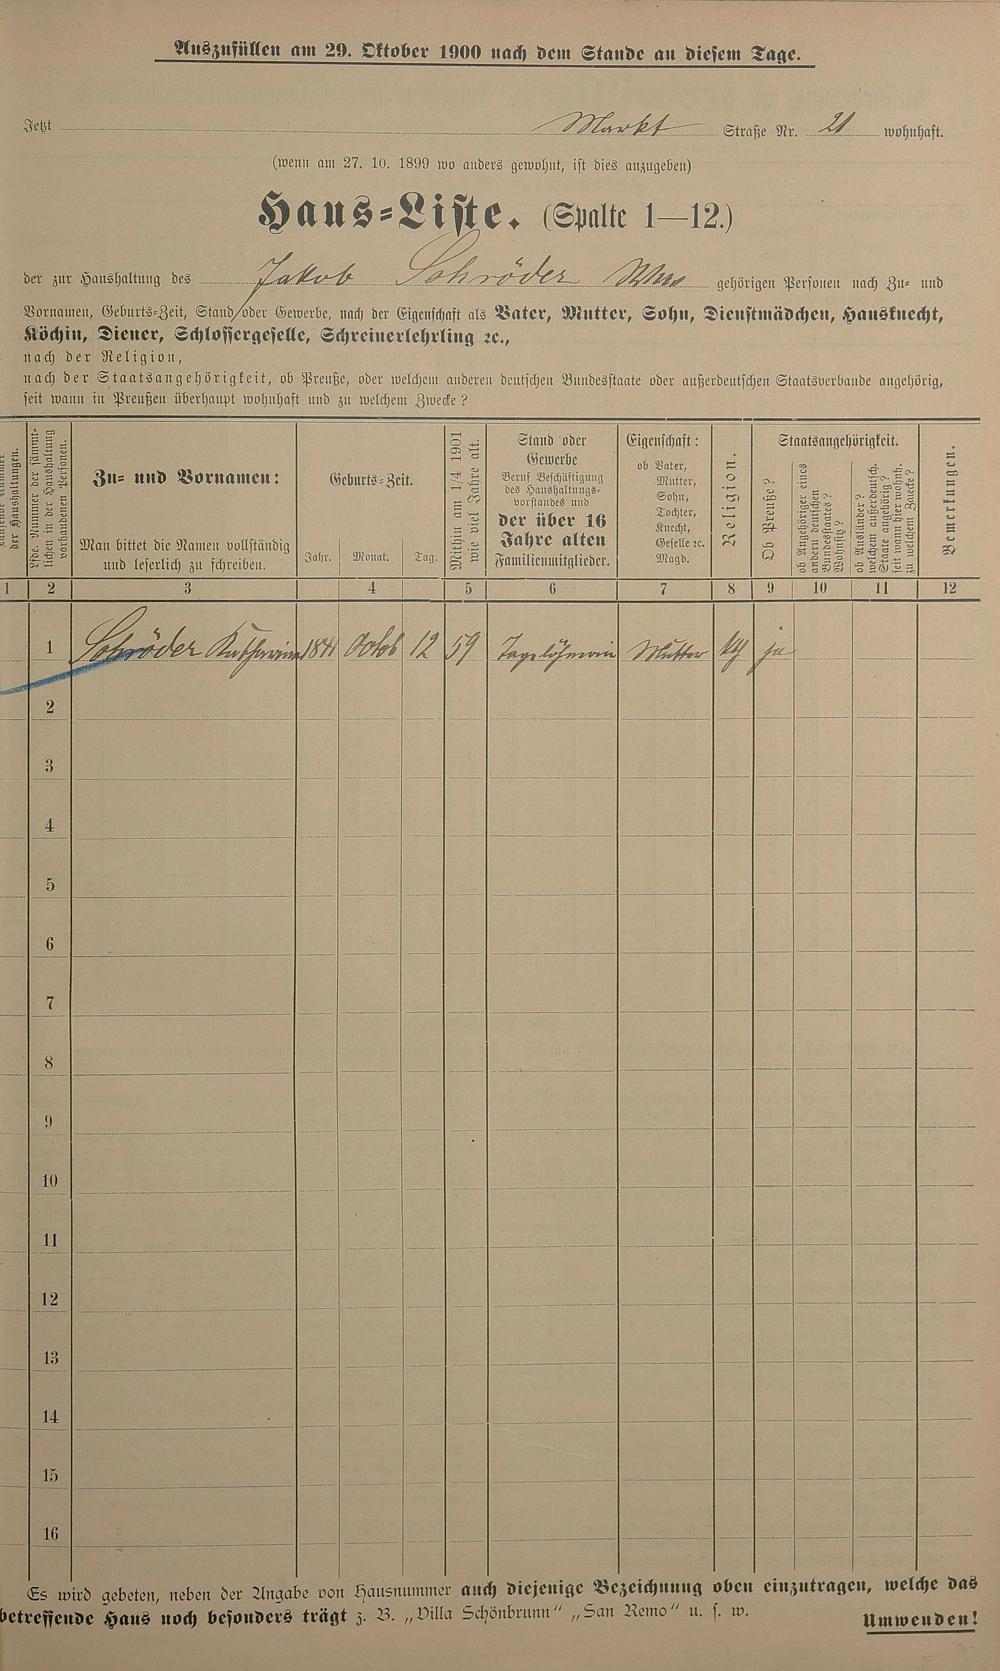 Auszufüllen am 29. Oktober 1900 nach dem Stande an diesem Tage.
Jetzt Markt Straße Nr. 21 wohnhaft.
(wenn am 27. 10. 1899 wo anders gewohnt, ist dies anzugeben)
Haus-Liste. (Spalte 1—12.)
der zur Haushaltung des Jakob Schröder Wwe gehörigen Personen nach Zu- und
Vornamen, Geburts-Zeit, Stand oder Gewerbe, nach der Eigenschaft als Vater, Mutter, Sohn, Dienstmädchen, Hausknecht,
Köchin, Diener, Schlossergeselle, Schreinerlehrling ꝛc.,
nach der Religion,
nach der Staatsangehörigkeit, ob Preuße, oder welchem anderen deutschen Bundesstaate oder außerdeutschen Staatsverbande angehörig,
seit wann in Preußen überhaupt wohnhaft und zu welchem Zwecke?
Nummer
der Haushaltungen.
Lfde. Nummer der sämmt-
lichen in der Haushaltung
vorhandenen Personen.
Zu- und Vornamen:
Man bittet die Namen vollständig
und leserlich zu schreiben.
Geburts-Zeit.
Jahr. Monat. Tag.
Mithin am 1/4 1901
wie viel Jahre alt.
Stand oder
Gewerbe
Beruf Beschäftigung
des Haushaltungs-
vorstandes und
der über 16
Jahre alten
Familienmitglieder.
Eigenschaft:
ob Vater,
Mutter,
Sohn,
Tochter,
Knecht,
Geselle ꝛc.
Magd.
Religion.
Staatsangehörigkeit.
Ob Preuße?
ob Angehöriger eines
andern deutschen
Bundesstaates?
Wohnsitz?
ob Ausländer?
welchem außerdeutsch.
Staate angehörig?
seit wann hier wohnh.
zu welchem Zwecke?
Bemerkungen.
1 2 3 4 5 6 7 8 9 10 11 12
1 Schröder Katharina 1841 Octob 12 59 Tagelöhnerin Mutter kth ja
2
3
4
5
6
7
8
9
10
11
12
13
14
15
16
Es wird gebeten, neben der Angabe von Hausnummer auch diejenige Bezeichnung oben einzutragen, welche das
betreffende Haus noch besonders trägt z. B. „Villa Schönbrunn" „San Remo" u. s. w.
Umwenden!